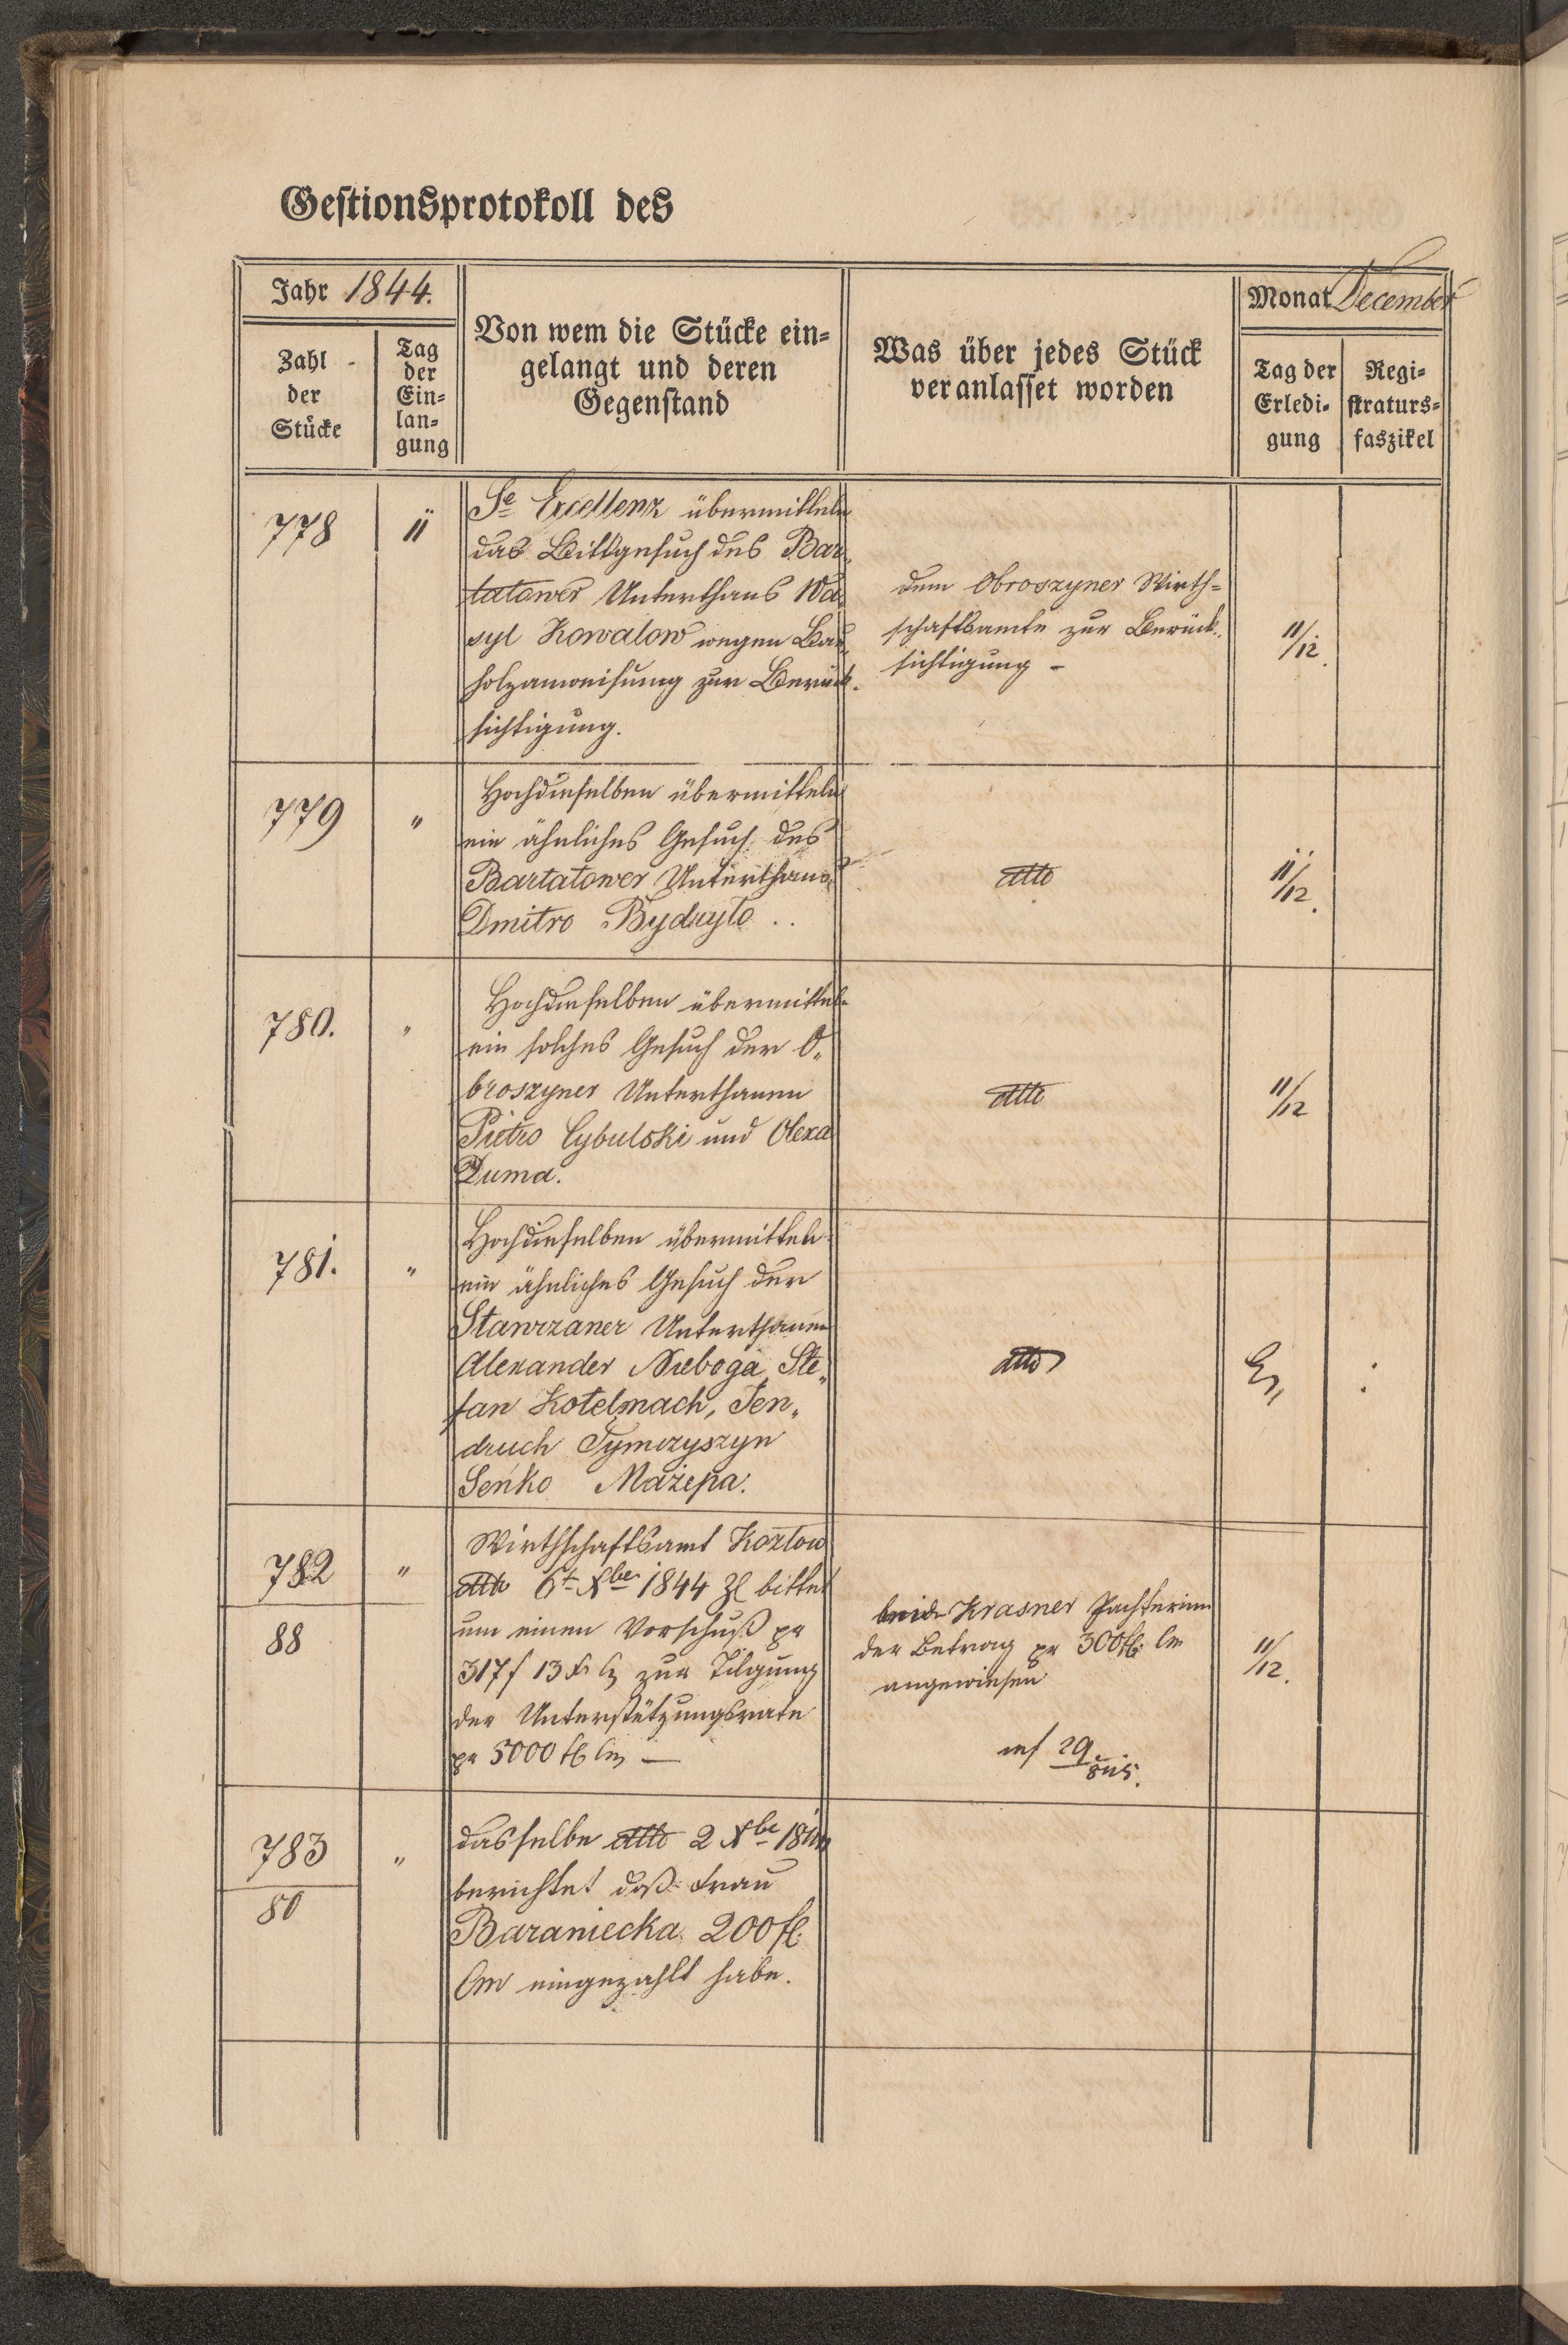 Gestionsprotokoll des
Jahr 1844.
Monat December
Zahl der Stücke
Tag der Ein-
lan-
gung
Von wem die Stücke ein-
gelangt und deren
Gegenstand
Was über jedes Stück
veranlasset worden
Tag der
Erledi-
gung
Regi-
straturs-
faszikel
778
11
Se Excellenz übermitteln
das Bittgesuch des Bar„
tatower Unterthans Wa„
syl Kowalow wegen Bau„
holzanweisung zur Berück„
sichtigung.
dem Obroszyner Wirth-
schaftsamte zur Berück„
sichtigung –
11/12.
779
"
Hochdieselben übermitteln
ein ähnliches Gesuch des
Bartatower Unterthans
Dmitro Bydryło ..
dtto
11/12.
780.
"
Hochdieselben übermitteln
ein solches Gesuch der O„
broszyner Unterthanen
Pietro Cybulski und Olexa
Duma.
dtto
11/12
781.
"
Hochdieselben übermitteln
ein ähnliches Gesuch der
Stawczaner Unterthanen
Alexander Nieboga, Ste„
fan Kotelmach, Jen„
druch Tymczyszyn
Seńko Mazepa.
dtto
782
88
"
Wirthschaftsamt Kozłow
dtto 6t Xber 1844 Zl bittet
um einen Vorschuß pr
317 f 13 Xr Cm zur Tilgung
der Unterstützungsrate
pr 5000 fl Cm —
Krasner Pachterinn
der Betrag pr 300 fl Cm
angewiesen
11/12.
783
80
"
dasselbe dtto 2 Xbr
berichtet daß Frau
Baraniecka 200 fl.
Cm eingezahlt habe.